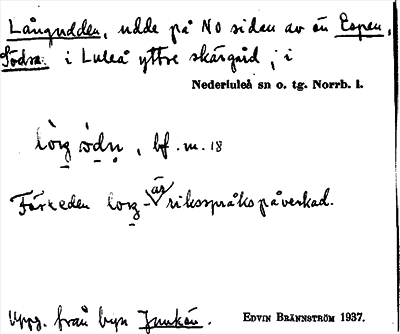 Långudden, udde på NO sidan av ön Espen,
Södra i Luleå yttre skärgård, i
Nederluleå sn o. tg. Norrb. l.
bf. m. 18
Förleden är riksspråkspåverkad.
Uppg. från byn Junkön. EDVIN BRÄNNSTRÖM 1937.